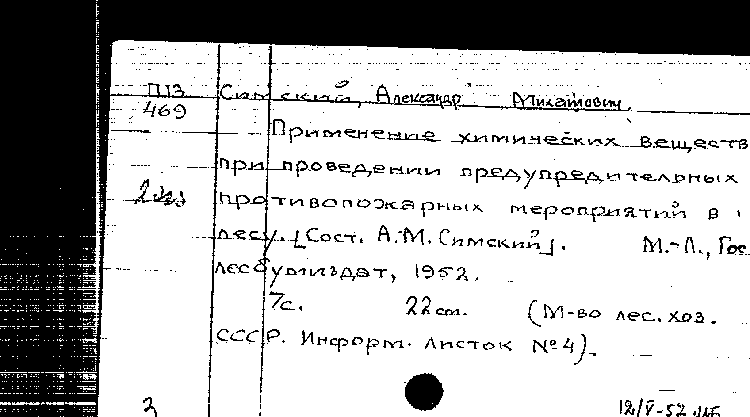 П13 Симский, Александр Михайлович.
469
Применение химических веществ
при проведении предупредительных
2 экз противопожарных мероприятий в
лесу. [Сост. А.М. Симский]. М.-Л., Гос
лесбумиздат, 1952.
7с. 22 см. (М-во лес. хоз.
СССР. Информ. листок №4).
3 12/V-52